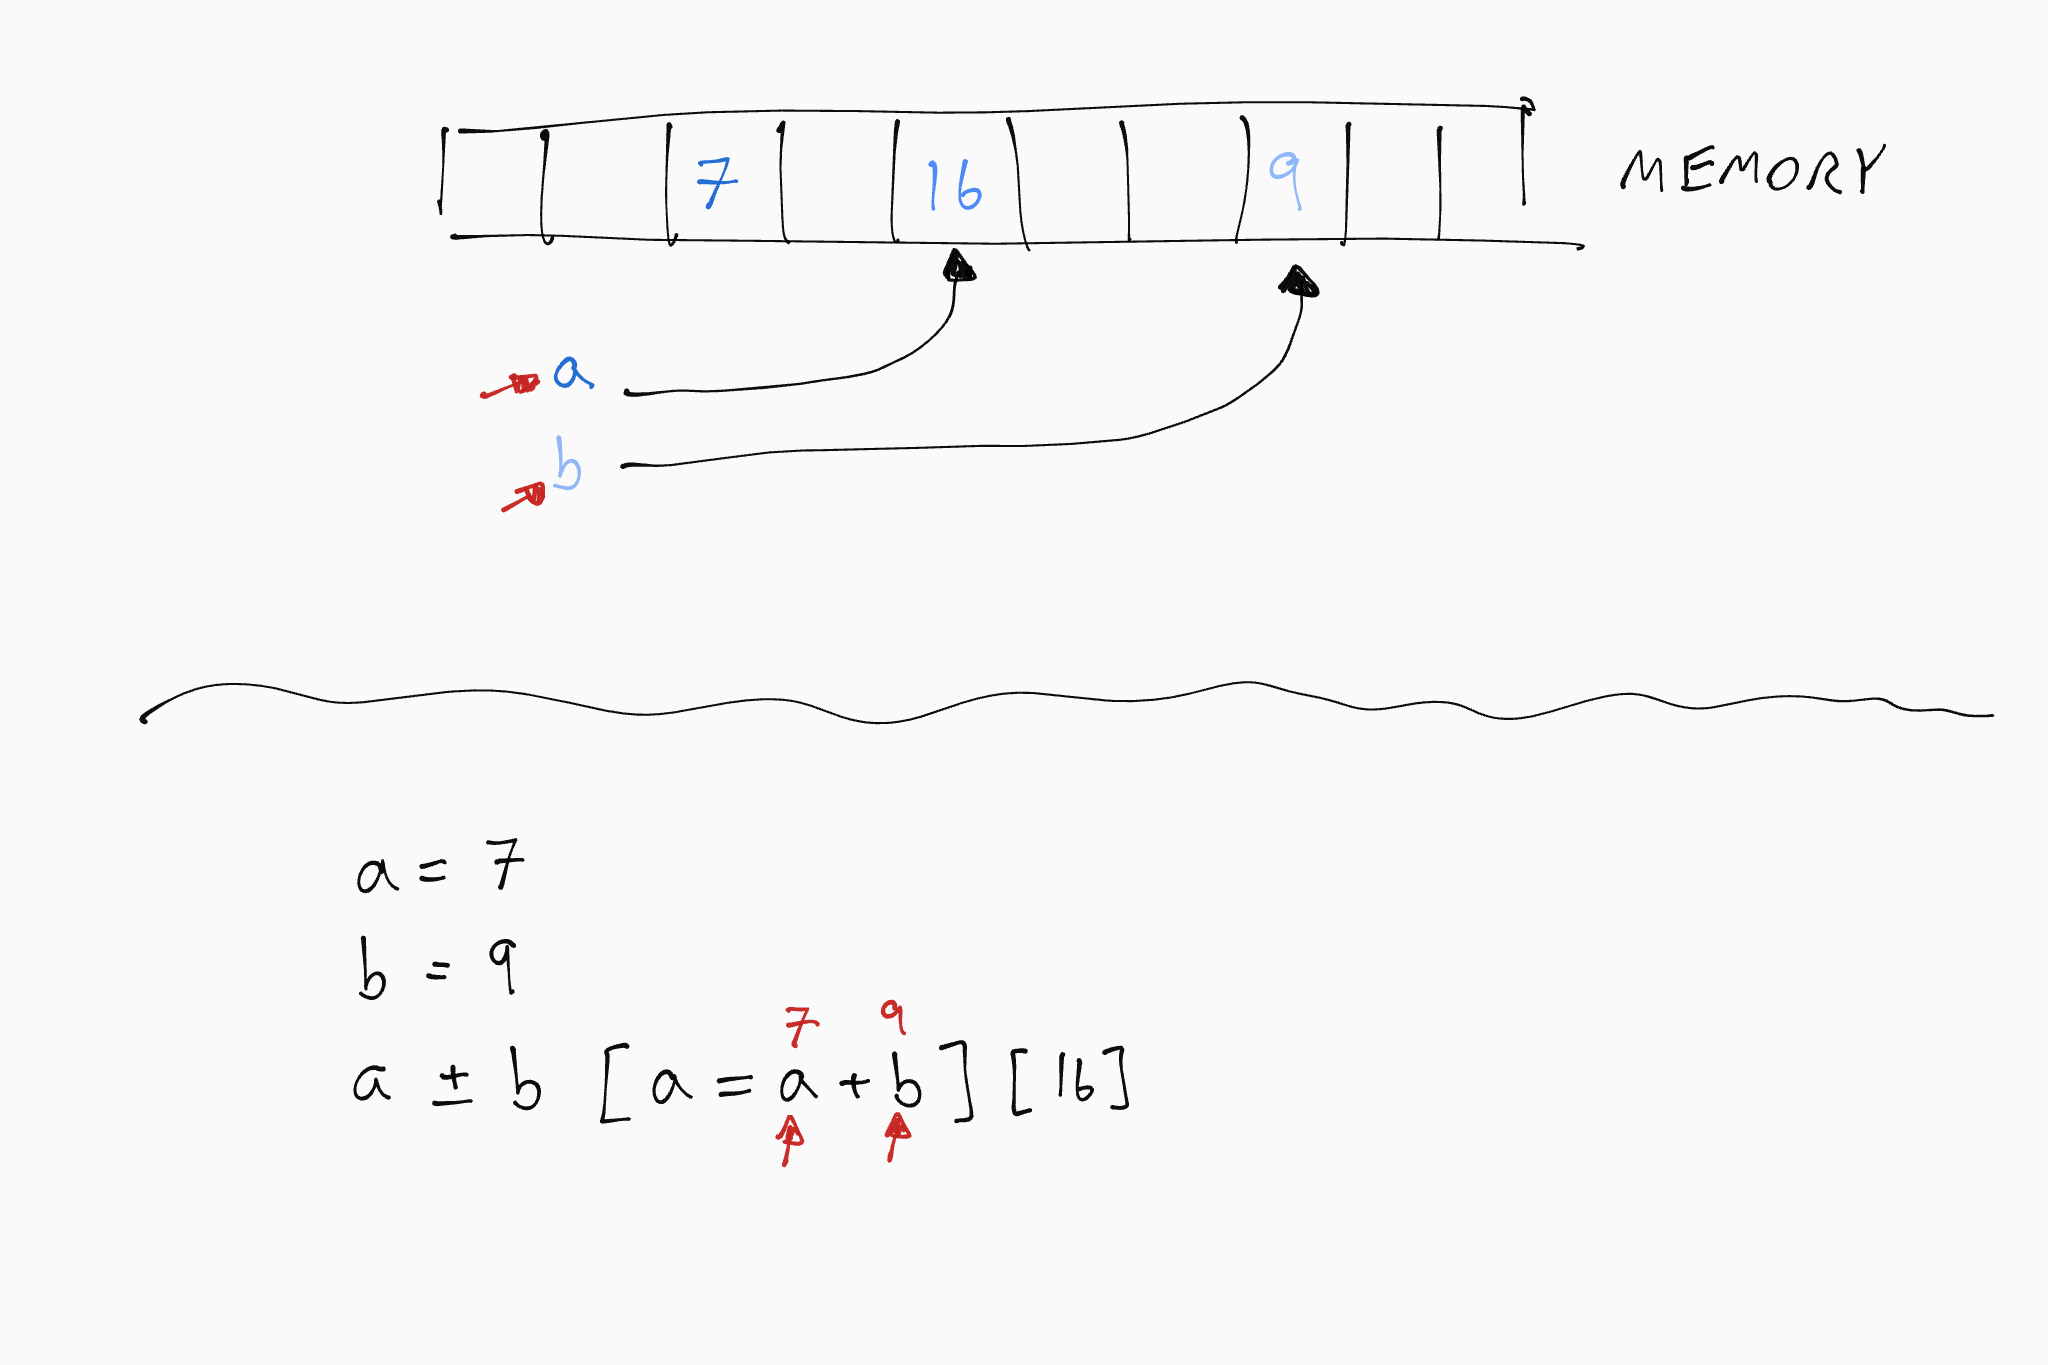 7 16 9 MEMORY
a
b
a = 7
b = 9
7 9
a ± b [a = a + b] [16]